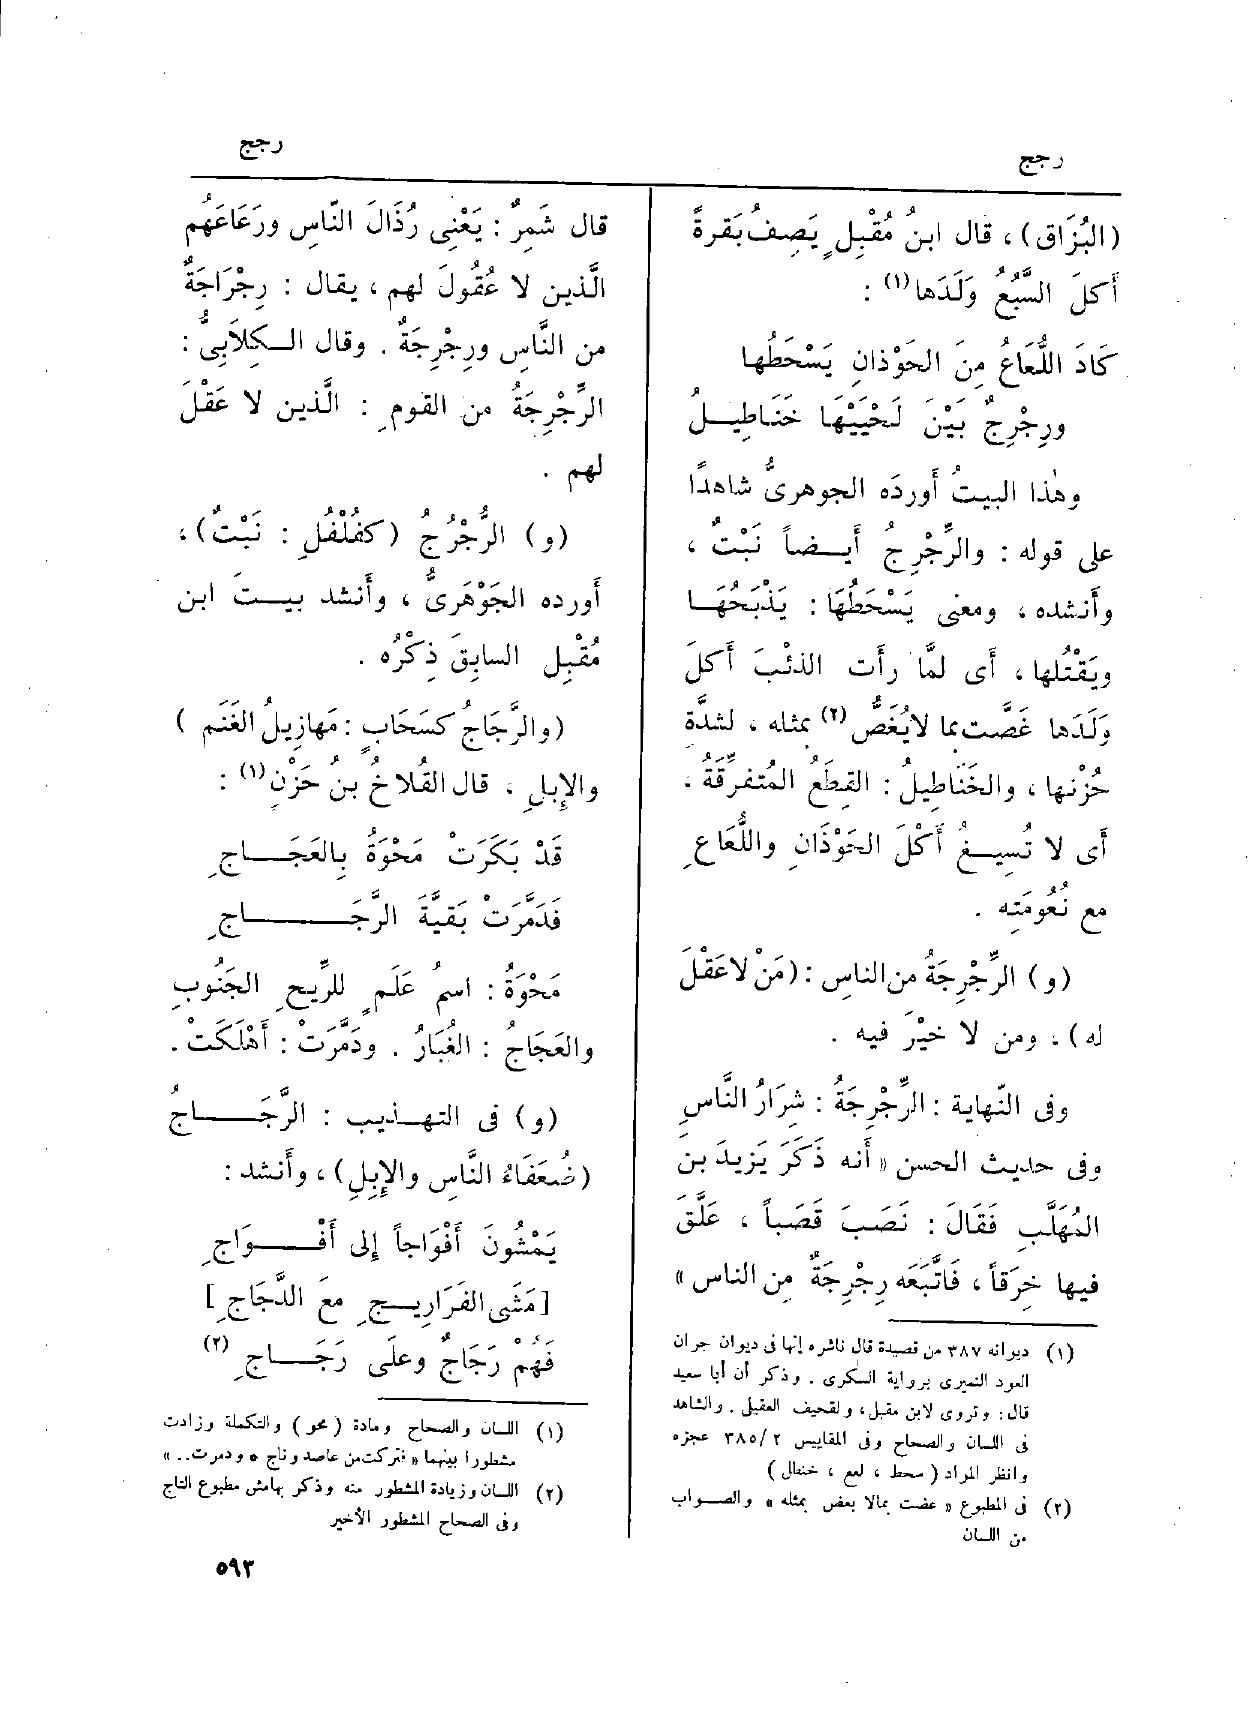 رجج
(البُزَاق)، قال ابنُ مُقْبِلٍ يَصِفُ بَقرةً
أَكلَ السَّبُعُ وَلَدَها(١) :
كَادَ اللُّعَاعُ مِنَ الحَوْذانِ يَسْحَطُها
ورِجْرِجٌ بَيْنَ لَحْيَيْهَا خَنَاطِيلُ
وهٰذا البيتُ أَوردَه الجوهرىُّ شاهدًا
على قوله : والرِّجْرِجُ أَيضاً نَبْتٌ ،
وأَنشده ، ومعنى يَسْحَطُهَا : يَذْبَحُهَا
ويَقْتُلها ، أَى لمَّا رأَت الذئبَ أَكلَ
وَلَدَها غَصَّت بما لا يُغَصُّ(٢) بمثله ، لشدَّة
حُزْنها ، والخَنَاطِيلُ : القِطَعُ المُتفرِّقَةُ .
أَى لا تُسِيغُ أَكْلَ الحَوْذَانِ واللُّعَاعِ
مع نُعُومَتِه .
(و) الرِّجْرِجَةُ من الناسِ : (مَنْ لا عَقْلَ
له) ، ومن لا خيْرَ فيه .
وفى النّهاية : الرِّجْرِجَةُ : شِرَارُ النَّاسِ
وفى حديث الحسن « أَنه ذَكَرَ يَزِيدَ بن
المُهَلَّبِ فَقَالَ : نَصَبَ قَصَباً ، عَلَّقَ
فيها خِرَقاً ، فَاتَّبَعَه رِجْرِجَةٌ مِن الناس »
(١) ديوانه ٣٨٧ من قصيدة قال ناشره إنها فى ديوان جران
العود النميرى برواية السكرى . وذكر أن أبا سعيد
قال : وتروى لابن مقبل ، ولقحيف العقيل . والشاهد
فى اللسان والصحاح وفى المقاييس ٢/ ٣٨٥ عجزه
وانظر المواد ( سحط ، لعع ، خنطل )
(٢) فى المطبوع « غضت بمالا بغض بمثله » والصواب
من اللسان
رجج
قال شَمِرٌ : يَعْنِى رُذَالَ النّاسِ ورَعَاعَهُم
الَّذين لا عُقُولَ لهم ، يقال : رِجْرَاجَةٌ
من النَّاسِ ورِجْرِجَةٌ . وقال الكِلَابِىُّ :
الرِّجْرِجَةُ من القومِ : الَّذين لا عَقْلَ
لهم .
(و) الرُّجْرُجُ (كفُلْفُلٍ : نَبْتٌ) ،
أَورده الجَوْهَرِىُّ ، وأَنشد بيتَ ابن
مُقْبِل السابِقَ ذِكْرُه .
(والرَّجَاجُ كسَحَابٍ : مَهازِيلُ الغَنَم )
والإِبلِ . قال القُلاخُ بنُ حَزْنٍ(١) :
قَدْ بَكَرَتْ مَحْوَةُ بِالعَجَاجِ
فَدَمَّرَتْ بَقيَّةَ الرَّجَاجِ
مَحْوَةُ : اسمُ عَلَمٍ للرِّيحِ الجَنُوبِ
والعَجَاجُ : الغُبَارُ . ودَمَّرَتْ : أَهْلَكَتْ .
(و) فى التهذيب : الرَّجَاجُ
(ضُعَفَاءُ النَّاسِ والإِبِلِ) ، وأَنشد :
يَمْشُونَ أَفْوَاجاً إِلى أَفْوَاجِ
[مَشْىَ الفَرَارِيجِ مَعَ الدَّجَاجِ ]
فَهُمْ رَجَاجٌ وعلَى رَجَاجِ(٢)
(١) اللسان والصحاح ومادة ( محو ) والتكملة وزادت
مشطورا بينهما « فتركت من عاصد وناج * ودمرت.. »
(٢) اللسان وزيادة المشطور منه وذكر بهامش مطبوع التاج
وفى الصحاح المشطور الأخير
٥٩٣